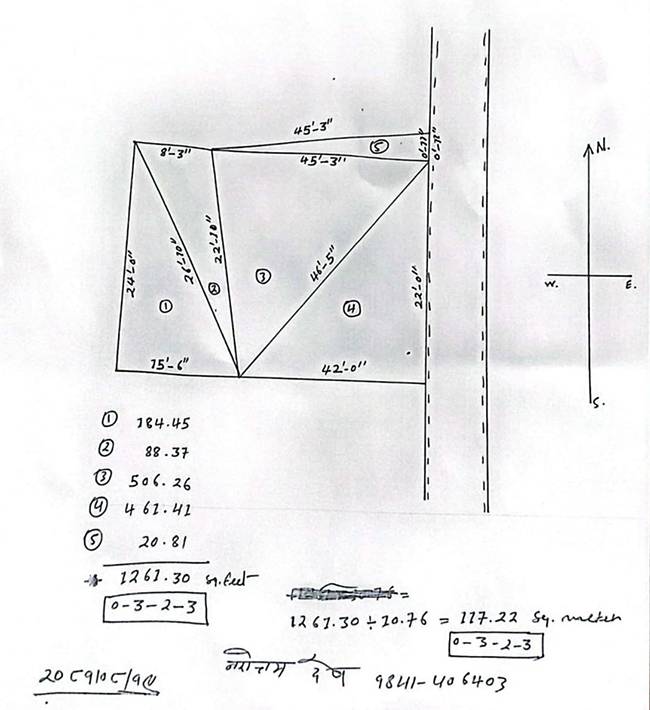 N.
45'-3"
8'-3"
⑤
45'-3"
0'-11"
0'-11"
24'-0"
26'-10"
22'-10"
46'-5"
②
③
①
④
22'-0"
W.
E.
15'-6"
42'-0"
S.
① 184.45
② 88.37
③ 506.26
④ 461.41
⑤ 20.81
1261.30 Sq.feet
0-3-2-3
1261.30 ÷ 10.76 = 117.22 Sq. meter
0-3-2-3
9841-406403